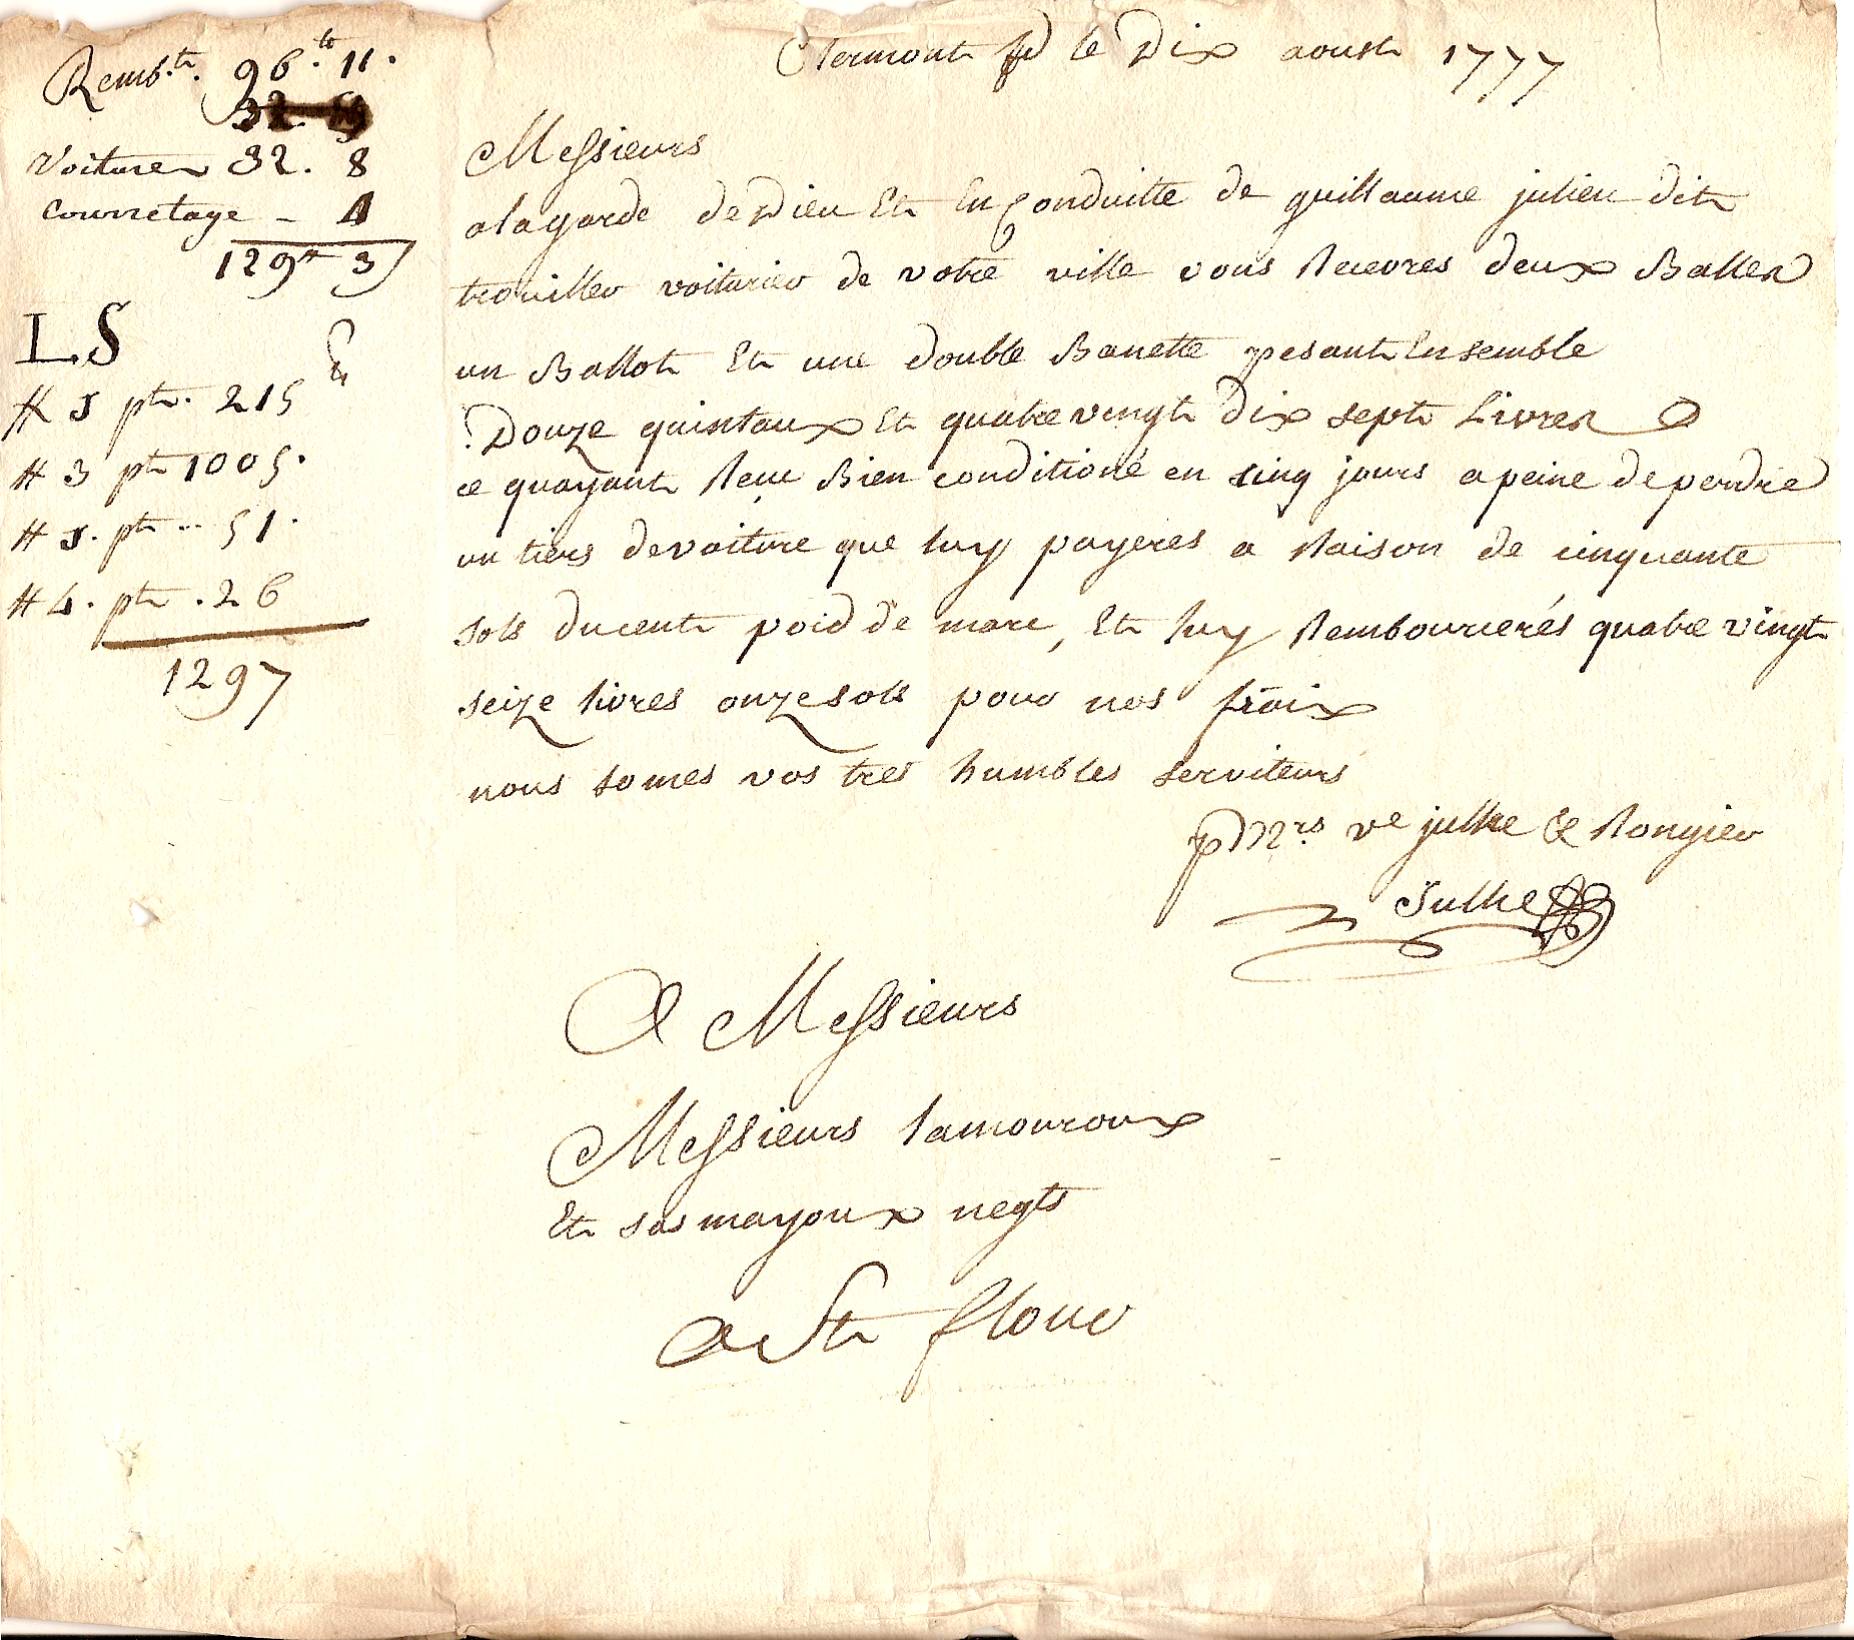 Remb.t. 96.tt 11.
Voiture 32. 8
courretage - 4
129tt 3
LS
# 5 pt. 215
# 3 pt 1005.
# 5. pt .. 51.
# 4. pt . 26
1297
Clermont fd le Dix aoust 1777
Messieurs
a la garde de Dieu Et En Conduitte de guillaume julien dit
trouiller voiturier de votre ville vous Recevres deux Balles
un Ballot Et une double Banette pesant Ensemble
Douze quintaux Et quatre vingt Dix sept Livres
ce quayant Receu Bien conditioné en sinq jours a peine de perdre
un tiers de voiture que luy payeres a Raison de cinquante
sols du cent poid de marc, Et luy Rembourcerés quatre vingt
seize livres onze sols pour nos frais
nous somes vos tres humbles serviteurs
p Mrs ve julhe & Rongier
Julhe
A Messieurs
Messieurs lamouroux
Et sasmayoux negts
A St flour